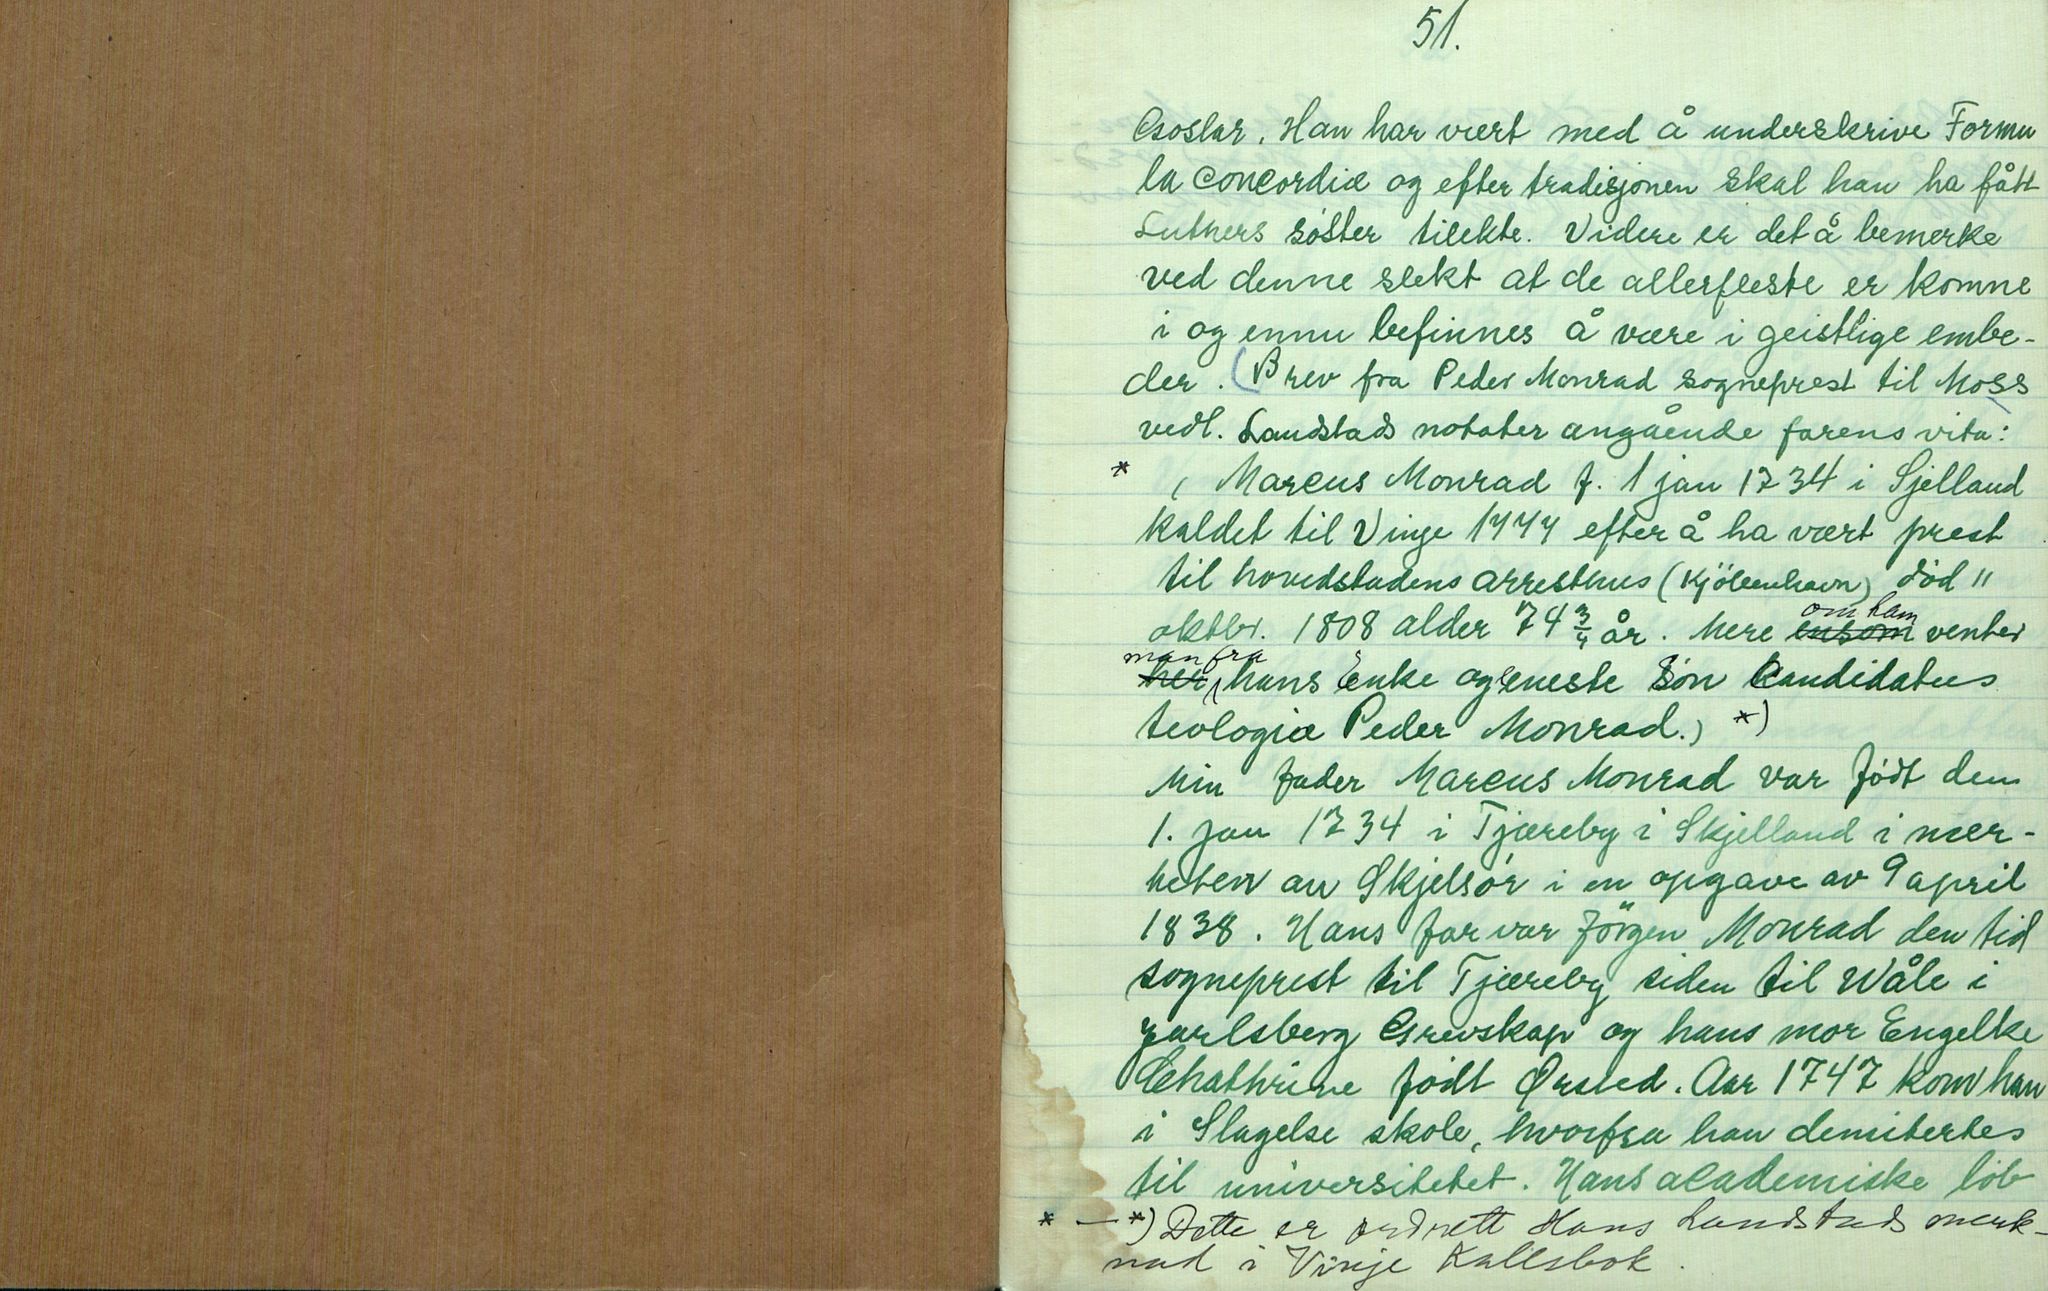 51.
Goslar. Han har vært med å underskrive Formu
la Concordiæ og efter tradisjonen skal han ha fått
Luthers søster tilekte. Videre er det å bemerke
ved denne slekt at de allerfleste er komne
i og ennu befinnes å være i geistlige embe-
der. (Brev fra Peder Monrad sogneprest til Moss
vedl. Landstads notater angående farens vita:
* ( Marcus Monrad f. 1 jan 1734 i Sjelland
kaldet til Vinje 1777 efter å ha vært prest
til hovedstadens arresthus (Kjöbenhavn) död 11
oktbr. 1808 alder 74 3/4 år. Mere om ham venter
man fra hans Enke og eneste Sön Candidatus
teologiæ Peder Monrad.) *)
Min fader Marcus Monrad var födt den
1. jan 1734 i Tjæreby i Skjelland i nær-
heten av Skjelsör i en opgave av 9 april
1838. Hans far var Jörgen Monrad den tid
sogneprest til Tjæreby siden til Wåle i
Jarlsberg Grevskap og hans mor Engelke
Chathrine født Ørsted. Aar 1747 kom han
i Slagelse skole, hvorfra han demitertes
til universitetet. Hans academiske löb
* — *) Dette er ordrett Hans Landstads merk-
nad i Vinje Kallsbok.